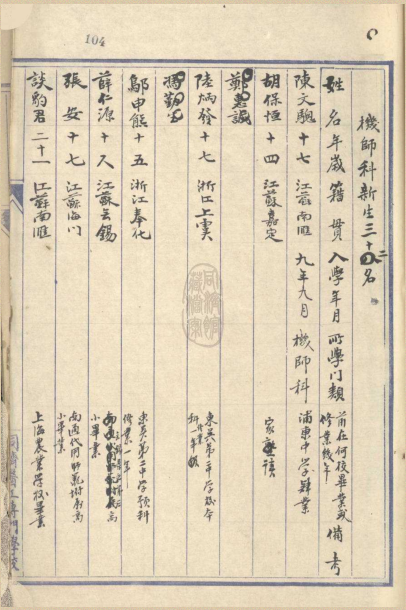 104
機師科新生三十二名
姓名 年歲 籍貫 入學年月 所學门類 前在何校畢業或修業幾年 備考
陳文聰 十七 江蘇南匯 九年九月 機師科 浦東中学肄業
胡保恒 十四 江蘇嘉定 家塾
鄭惠誠
陸炳發 十七 浙江上虞 東吳第二中学
馮勤生
鄔申熊 十五 浙江奉化 東吳第二中学預科修業一年
薛仁源 十八 江蘇無錫 高小畢業
張安 十七 江蘇海门 南通代用師範附属高小畢業
談豹君 二十一 江蘇南匯 上海農業学校畢業
同濟醫工專門學校